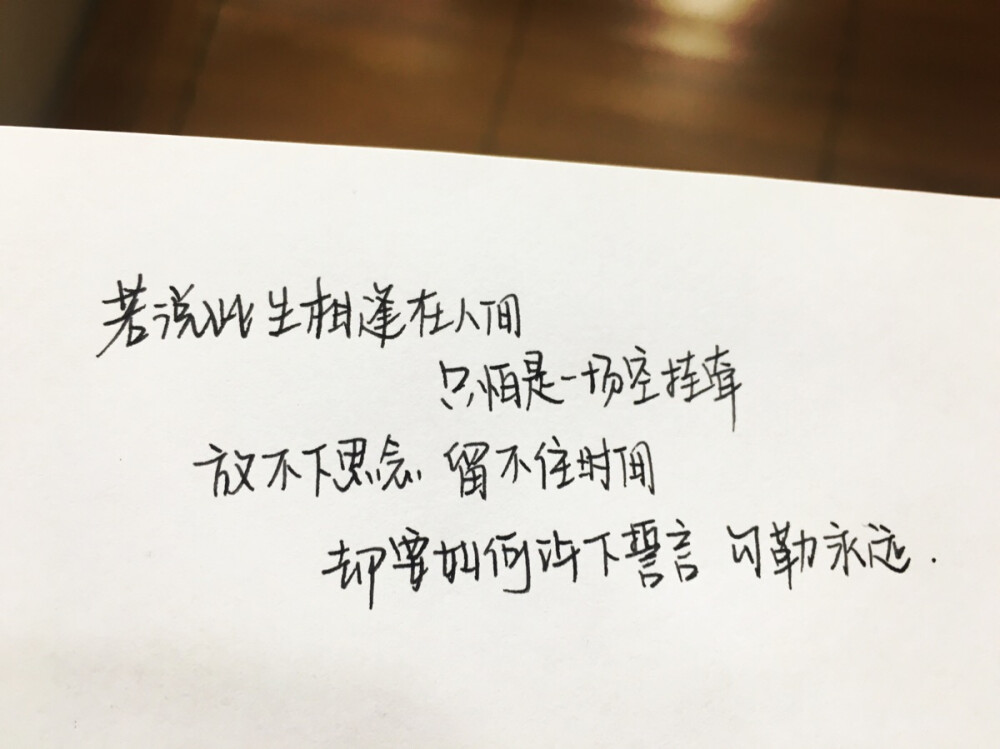 若说此生相逢在人间
只怕是一场空挂牵
放不下思念 留不住时间
却要如何许下誓言 勾勒永远.